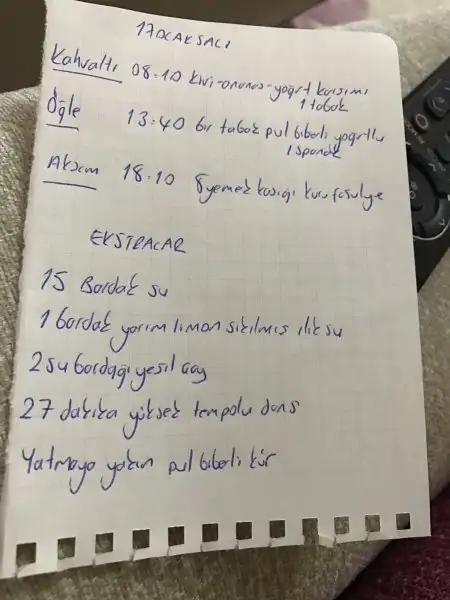 17 OCAK SALI
Kahvaltı 08:10 kivi-ananas-yoğurt karışımı
1 tabak
Öğle 13:40 bir tabak pul biberli yoğurtlu
ıspanak
Akşam 18:10 8 yemek kaşığı kuru fasulye
EKSTRALAR
15 Bardak su
1 bardak yarım limon sıkılmış ılık su
2 su bardağı yeşil çay
27 dakika yüksek tempolu dans
Yatmaya yakın pul biberli kür